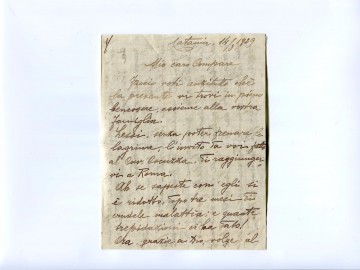 Catania, 16/1 1929
Mio caro Compare
Faccio voti anzitutto che
la presente vi trovi in pieno
benessere, assieme alla vostra
famiglia.
Lessi, senza poter frenare le
lagrime, l'invito da voi fatto
al Cav. Cocuzza, di raggiunger
vi a Roma.
Ah se sapeste com'egli si
è ridotto, dopo tre mesi di
crudele malattia; e quante
trepidazioni ci ha dato!
Ora, grazie a Dio, volge al